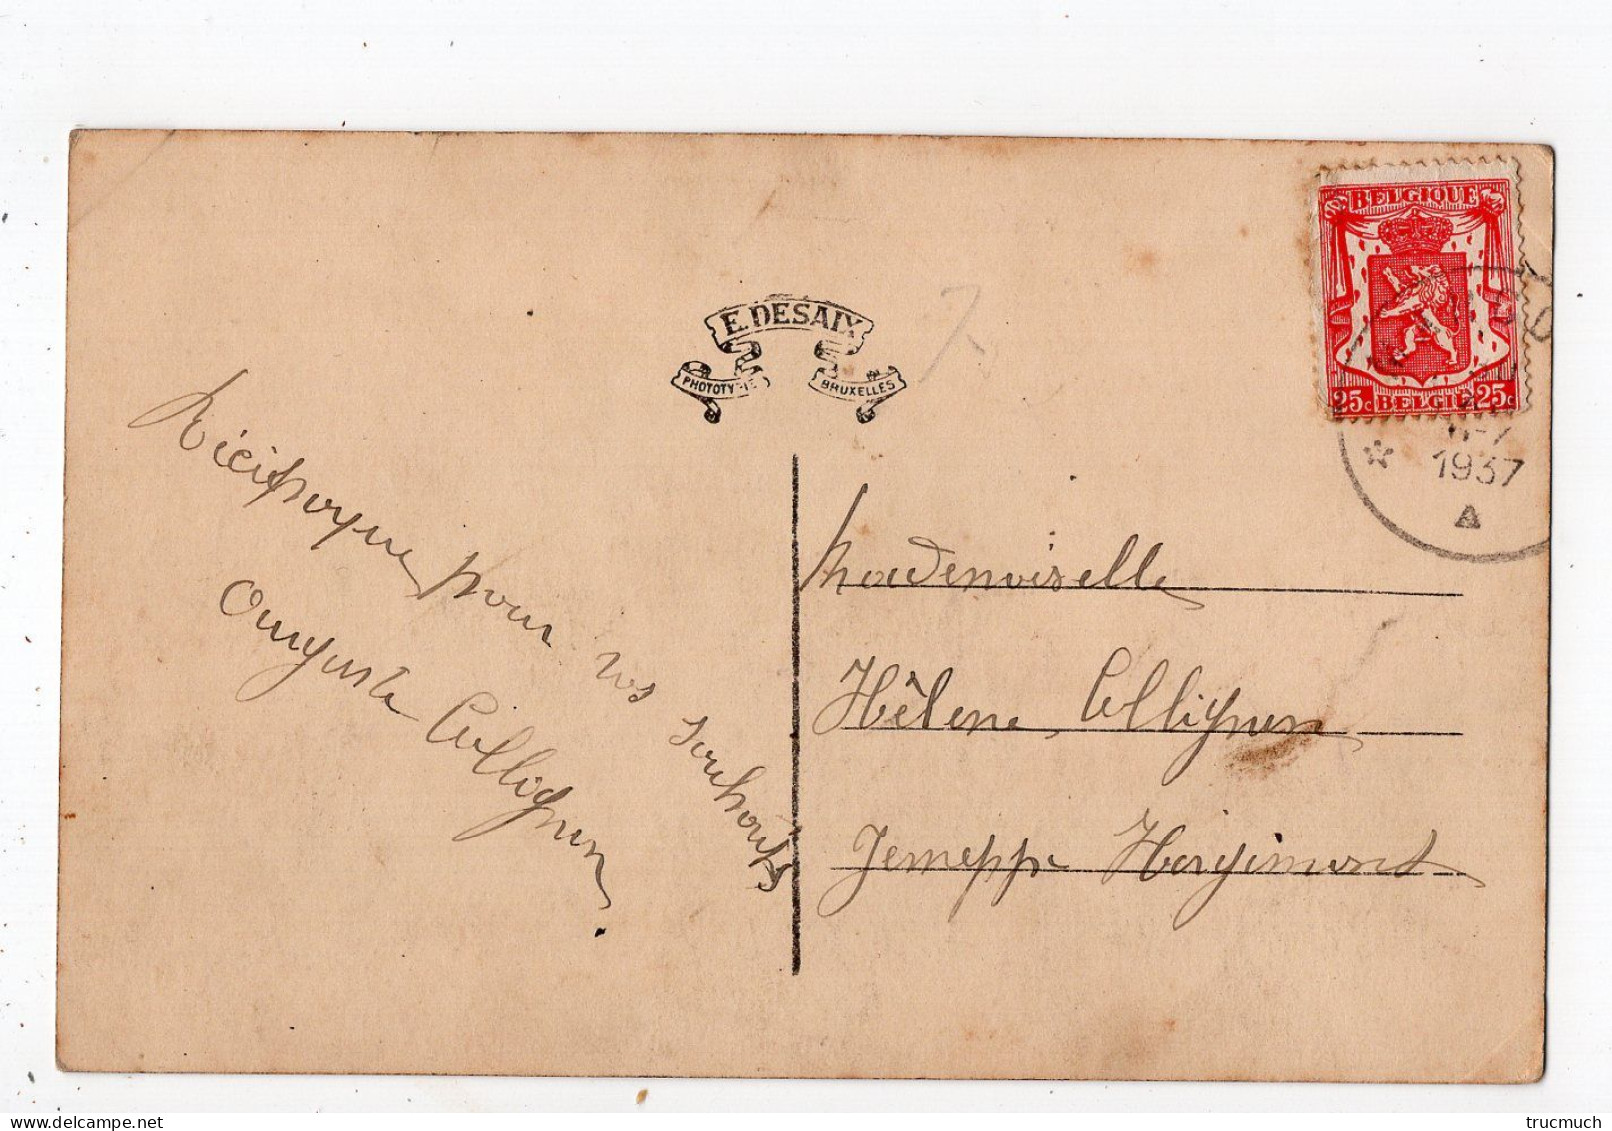 E. DESAIX
PHOTOTYPIE BRUXELLES
BELGIQUE
25c BELGIE 25c
1937
A
Réciproque pour vos souhaits
Auguste Collignon.
Mademoiselle
Hélène Collignon
Jemeppe Hargimont
trucmuch